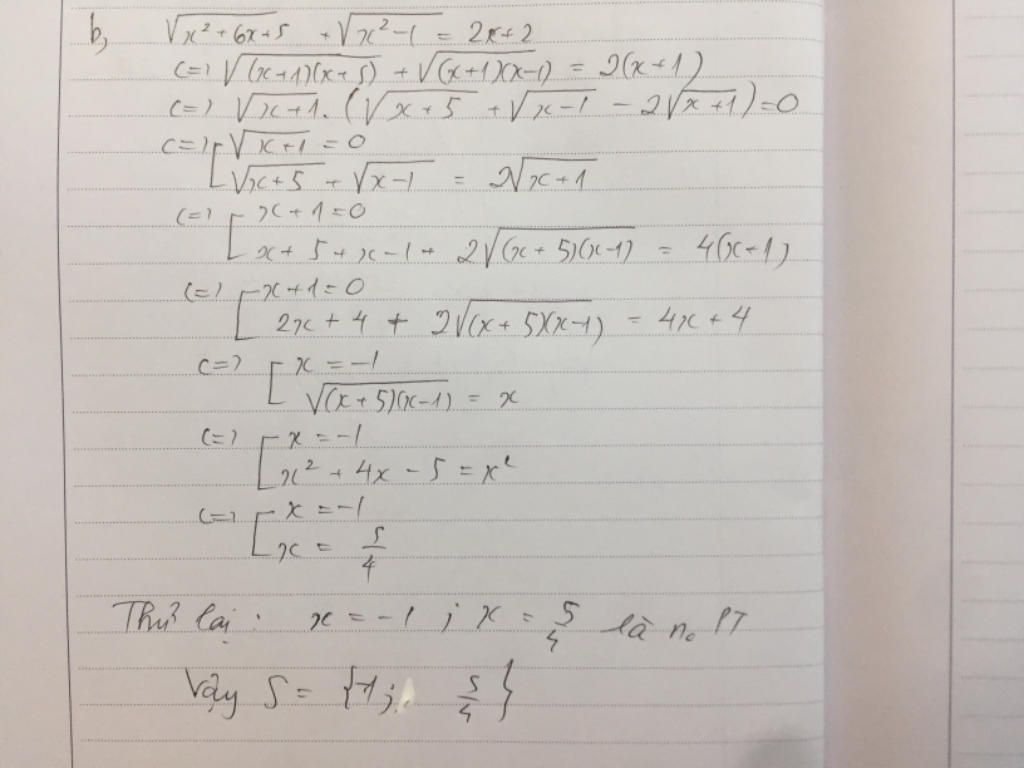 b, √(x² + 6x + 5) + √(x² - 1) = 2x + 2
<=> √((x+1)(x+5)) + √((x+1)(x-1)) = 2(x+1)
<=> √(x+1). (√(x+5) + √(x-1) - 2√(x+1)) = 0
<=> [ √(x+1) = 0
√(x+5) + √(x-1) = 2√(x+1)
<=> [ x + 1 = 0
x + 5 + x - 1 + 2√((x+5)(x-1)) = 4(x+1)
<=> [ x + 1 = 0
2x + 4 + 2√((x+5)(x-1)) = 4x + 4
<=> [ x = -1
√((x+5)(x-1)) = x
<=> [ x = -1
x² + 4x - 5 = x²
<=> [ x = -1
x = 5/4
Thử lại : x = -1 ; x = 5/4 là no PT
Vậy S = {-1; 5/4}